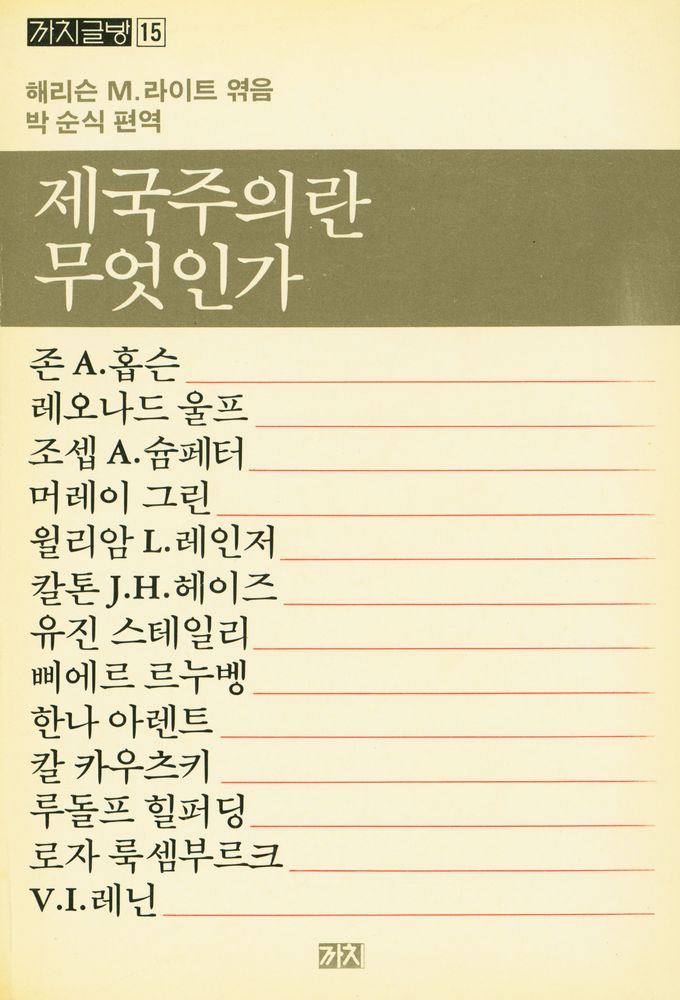 까치글방 15
해리슨 M.라이트 엮음
박 순식 편역
제국주의란
무엇인가
존 A.홉슨
레오나드 울프
조셉 A.슘페터
머레이 그린
윌리암 L.레인저
칼톤 J.H.헤이즈
유진 스테일리
삐에르 르누벵
한나 아렌트
칼 카우츠키
루돌프 힐퍼딩
로자 룩셈부르크
V.I.레닌
까치